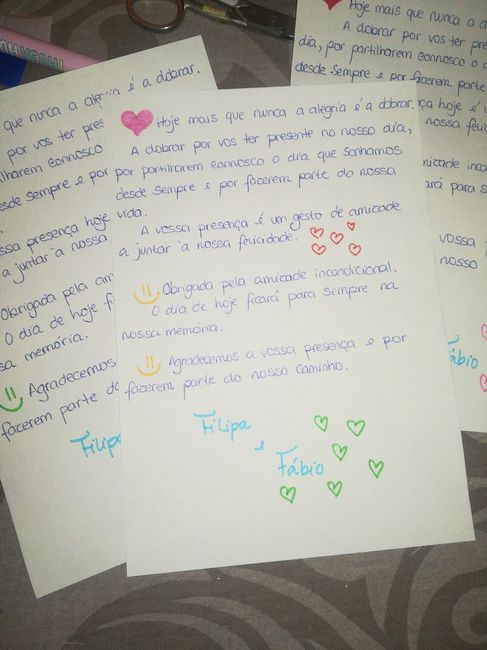 Hoje mais que nunca a alegria é a dobrar.
A dobrar por vos ter presente no nosso dia,
por partilharem connosco o dia que sonhamos
desde sempre e por fazerem parte da nossa
vida.
A vossa presença é um gesto de amizade
a juntar à nossa felicidade.
Obrigada pela amizade incondicional.
O dia de hoje ficará para sempre na
nossa memória.
Agradecemos a vossa presença e por
fazerem parte do nosso caminho.
Filipa
e
Fábio
que nunca a alegria é a dobrar.
por vos ter
connosco
desde sempre e por
hoje
a juntar à nossa
Obrigada pela
O dia de hoje
memória.
Agradecemos
fazerem parte do
Filipa
Hoje mais que nunca a
A dobrar por vos ter
dia, por partilharem connosco o
desde sempre e por fazerem parte
hoje é
nossa
amizade
para
vossa
nosso
Fábio